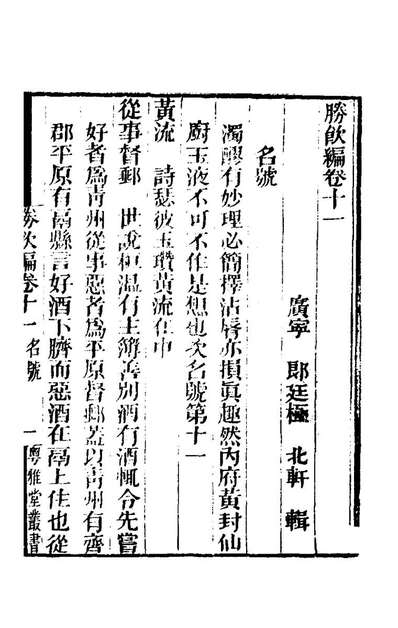 勝飲編卷十一
廣寧　郎廷極　北軒　輯
名號
濁醪有妙理必簡擇沾唇亦損眞趣然內府黃封仙
廚玉液不可不作是想也次名號第十一
黃流　詩瑟彼玉瓚黃流在中
從事督郵　世說桓温有主簿善別酒有酒輒令先嘗
好者爲靑州從事惡者爲平原督郵蓋以靑州有齊
郡平原有鬲縣言好酒下臍而惡酒在鬲上住也從
勝飲編卷十一　名號　一　粵雅堂叢書